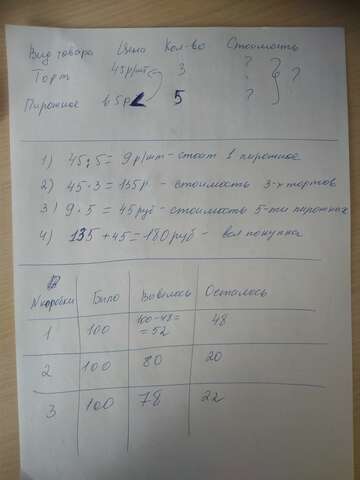 Вид товара Цена Кол-во Стоимость
Торт 45р/шт 3 ? ?
Пирожное в 5р < 5 ?
1) 45:5 = 9р/шт - стоит 1 пирожное
2) 45·3 = 135р - стоимость 3-х тортов
3) 9·5 = 45руб - стоимость 5-ти пирожных
4) 135 + 45 = 180руб - вся покупка
№ коробки Было Вывелось Осталось
1 100 100-48= =52 48
2 100 80 20
3 100 78 22